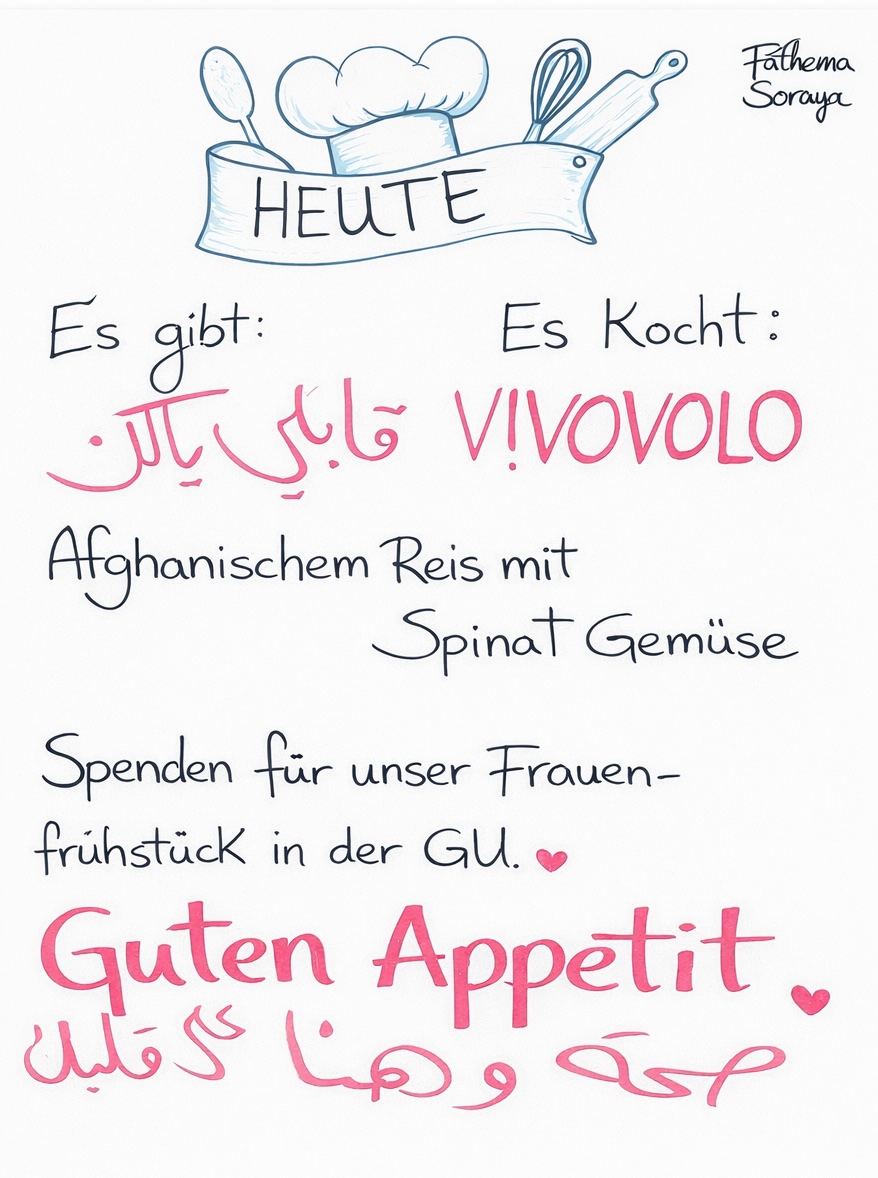 Fathema
Soraya
HEUTE
Es gibt:
Es Kocht:
قابلي
V!VOVOLO
Afghanischem Reis mit
Spinat Gemüse
Spenden für unser Frauen-
frühstück in der GU.
Guten Appetit
صحة و هنا